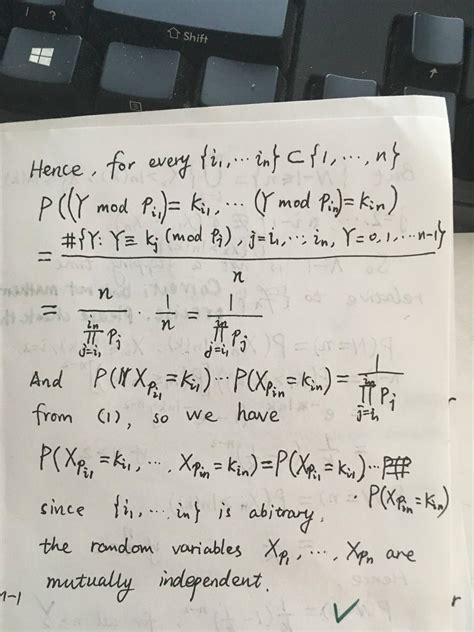 Shift
?
Hence, for every {i₁, ⋯ in} ⊂ {1, ⋯, n}
P((Y mod Pi₁) = Ki₁, ⋯ (Y mod Pin) = Kin)
= #{Y: Y ≡ kj (mod Pj), j = i₁, ⋯, in, Y = 0, 1, ⋯ n-1} / n
= n / ∏_{j=i₁}^{in} Pj · 1/n = 1 / ∏_{j=i₁}^{in} Pj
And P(XPi₁ = Ki₁) ⋯ P(XPin = Kin) = 1 / ∏_{j=i₁}^{in} Pj
from (1), so we have
P(XPi₁ = Ki₁, ⋯, XPin = Kin) = P(XPi₁ = Ki₁) ⋯
· P(XPin = Kin)
since {i₁, ⋯ in} is abitrary,
the random variables XP₁, ⋯, XPn are
mutually independent.
n-1
r
r
✓